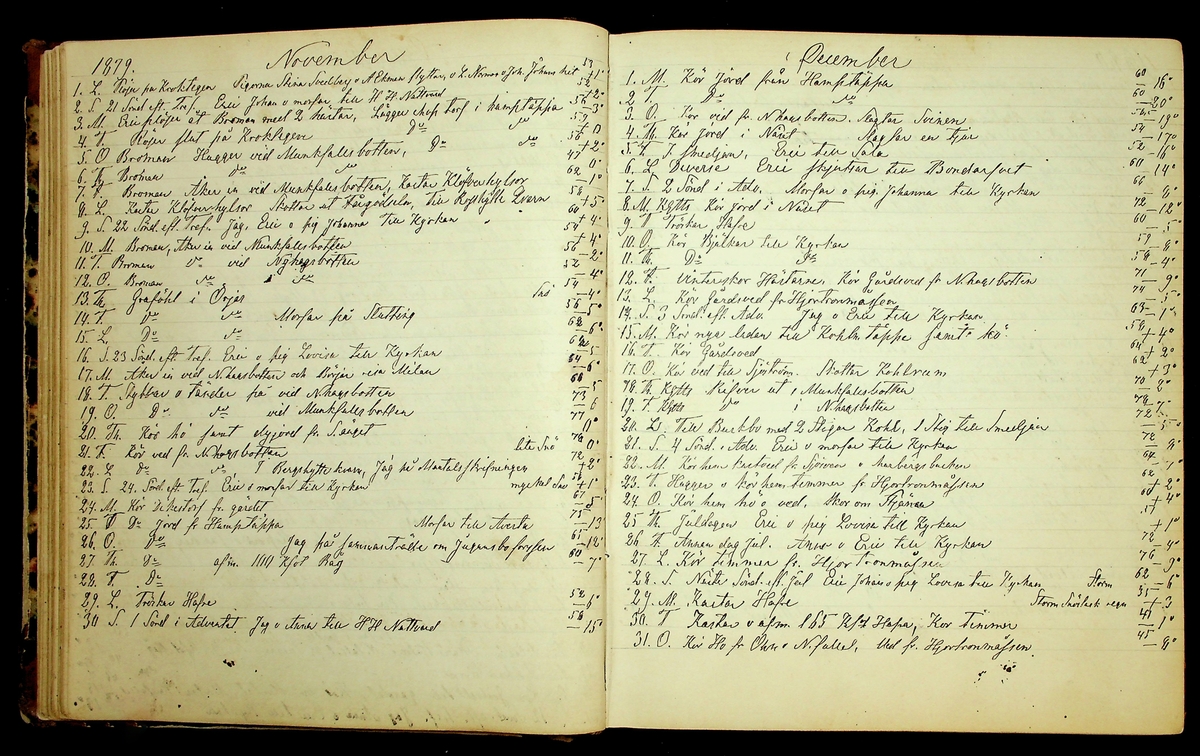 1879. November
1. L. Plöjer på Kroktegen Pigorna Stina Söderberg o A Ekman flyttar, o L. Norman o Joh. Johans hit 53 +1°
2. S. 21 Sönd. eft. Tref. Eric Johan o morfar till HH Nattvard 52 +2°
3. M. Eric plöjer åt Broman med 2 hästar, Lägger upp torf i hamptäppa 56 -3°
4. T. Plöjer slut på Kroktegen Do do 59 ± 0
5. O Broman Hugger ved Munkfallsbotten, Do do 56 +2°
6. Th. Broman do do 47 0°
7. F. Broman Åker in ved Munkfallsbotten, Kastar Klöfverhylsor 62 -1°
8. L. Kastar Klöfverhylsor Skottar ut Qvarn 58 +5°
9. S. 22 Sönd. eft. Tref. Jag, Eric o pig Johanna till Kyrkan 60 +4°
10. M. Broman, Åker in ved Munkfallsbotten 54 +4°
11. T. Broman do ved Nyhagsbotten 56 -2°
12. O. Broman do do 52 -4°
13. Th. Grafödl i Örsjö Snö 54 -4°
14. F do do Morfar på Slutting 56 -5°
15. L. Do do 62 -6°
16. S. 23 Sönd. eft. Tref. Eric o pig Lovisa till Kyrkan 62 -5
17. M. Åker in ved N.hagsbotten och Börjar resa Milan 64 -6°
18. T. Stybbar o tänder på ved N.hagsbotten 68 -5
19. O. Do do ved Munkfallsbotten 73 6
20. Th. Kör hö samt dyjord fr. S.änget 77 0°
21. F. Kör ved fr N.hagsbotten lite Snö 76 0°
22. L do do T Bergshytte kvarn, Jag på Mantalsskrifningen 72 +2°
23. S. 24. Sönd. eft. Tref. Eric o morfar till Kyrkan mycket Snö 56 +1°
24. M. Kör Dikestorf fr gärdet 67 -5°
25 T Do Jord fr Hamptäppa Morfar till Avesta 75 -13°
26. O. Do Jag på sammanträde om 65 -12°
27. Th. Do afm. 1111 Kfot Råg 60 -7°
28. F. Do
29. L. Tröskar Hafre 52 -6°
30 S. 1 Sönd i Advent. Jag o Anna till HH Nattvard 56 -15°
December
1. M. Kör Jord från Hamptäppa 60 16°
2 T Do do 60 -20°
3. O. Kör ved fr N.hagsbotten. Slagtar Svinen -19°
4. Th. Kör jord i Näset Slagtar en tjur 54 -17°
5. F. T. Smedjan, Eric till Sala 52 -16°
6. L. Diverse Eric skjutsar till Bondarfvet 60 -14°
7. S. 2 Sönd i Adv. Morfar o pig Johanna till Kyrkan 66 -8°
8. M. Kytts Kör jord i Näset 72 -12°
9. T Tröskar Hafre 60 -5°
10. O. Kör Bjälkar till Kyrkan 59 -8°
11. Th. Do Do -4°
12. F. Vinterskor Hästarne. Kör Gårdsved fr N.hagsbotten 71 -9°
13. L. Kör Gårdsved fr Hjortronmåssen 74 -5°
14. S. 3 Sönd. eft. Adv. Jag o Eric till Kyrkan 63 -1°
15. M. Kör nya ladan till Kohlntäppa samt hö 58 +4°
16. T. Kör Gårdsved 64 +2°
17. O. Kör ved till Sjöström. Skottar Kohlrum 62 +3°
18. Th. Kytts Rifver ut i Munkfallsbotten 70 -2°
19. F. Kytts do i N.hagsbotten 78 -7°
20. L. Till Burbo med 2 Stigar Kohl, 1 Stig till Smedjan 72 -5°
21. S. 4 Sönd. i Adv. Eric o morfar till Kyrkan 72 -8°
22. M. Kör hem kastved fr Sjöviken o 64 -1°
23. T. Hugger o kör hem timmer fr Hjortronmåssen 62 +2°
24. O. Kör hem hö o ved. Skor om Stjärna 60 +4°
25 Th. Juldagen Eric o pig Lovisa till Kyrkan 57 +1°
26 F. Annan dag Jul. Anna o Eric till Kyrkan 72 -4°
27. L. Kör timmer fr. Hjortronmåssen 76 -9°
28. S. Näste Sönd. eft. Jul Eric Johan o pig Lovisa till Kyrkan Storm 62 -6°
29. M. Kastar Hafre Storm Snöslask regn 35 +3
30. T Kastar o afm 165 Kft Hafre, Kör timmer 41 -1°
31. O. Kör Hö fr N.fallet, Ved fr. Hjortronmåssen 45 -8°